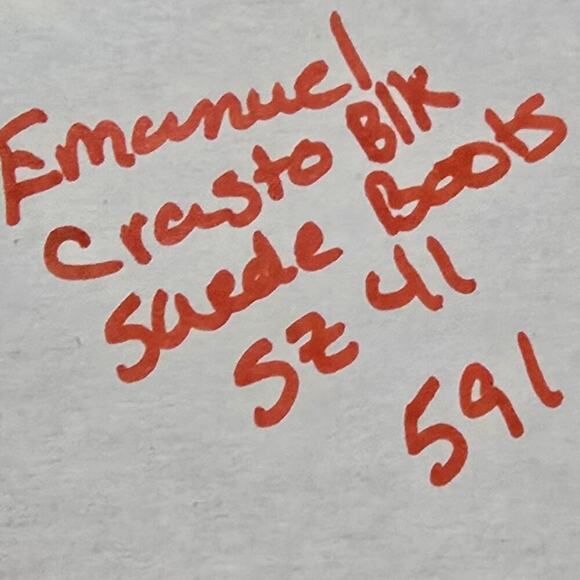 Emanuel
Crasto Blk
Suede Boots
Sz 41
591